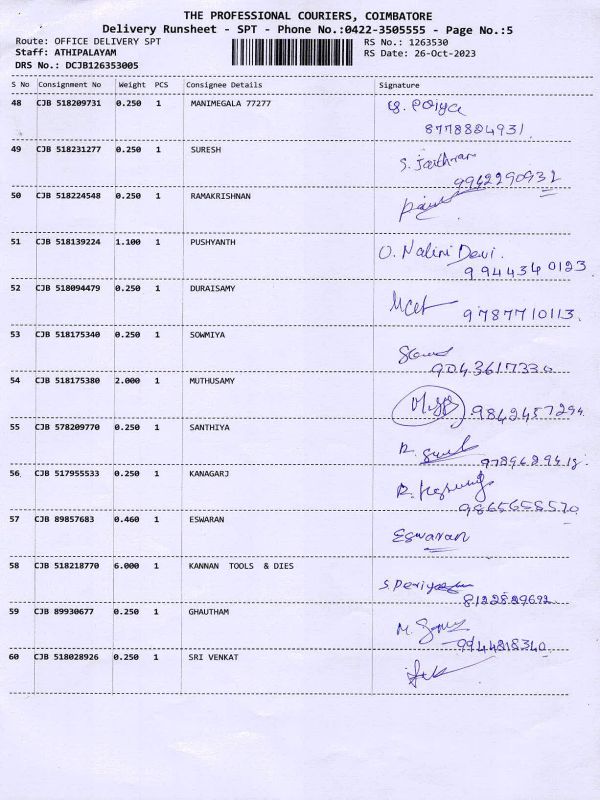 THE PROFESSIONAL COURIERS, COIMBATORE
Delivery Runsheet - SPT - Phone No.:0422-3505555 - Page No.:5
Route: OFFICE DELIVERY SPT RS No.: 1263530
Staff: ATHIPALAYAM RS Date: 26-Oct-2023
DRS No.: DCJB126353005
S No Consignment No Weight PCS Consignee Details Signature
48 CJB 518209731 0.250 1 MANIMEGALA 77277
8778824931
49 CJB 518231277 0.250 1 SURESH
9942290932
50 CJB 518224548 0.250 1 RAMAKRISHNAN
51 CJB 518139224 1.100 1 PUSHYANTH O. Nalini Devi.
9944340123
52 CJB 518094479 0.250 1 DURAISAMY
9787710113.
53 CJB 518175340 0.250 1 SOWMIYA
54 CJB 518175380 2.000 1 MUTHUSAMY
9842457294
55 CJB 578209770 0.250 1 SANTHIYA
56 CJB 517955533 0.250 1 KANAGARJ
57 CJB 89857683 0.460 1 ESWARAN Eswaran
58 CJB 518218770 6.000 1 KANNAN TOOLS & DIES
59 CJB 89930677 0.250 1 GHAUTHAM
9944818340
60 CJB 518028926 0.250 1 SRI VENKAT